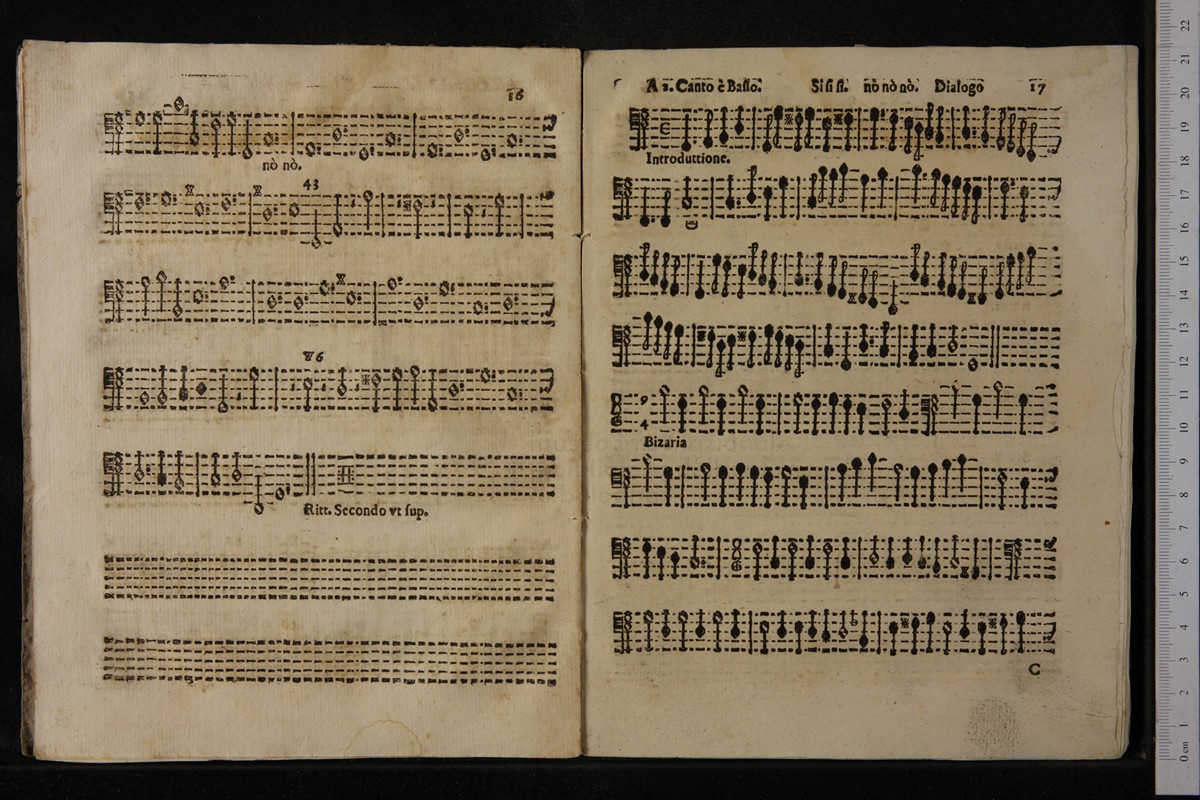 16
nò nò.
43
6
Ritt. Secondo vt sup.
A 2. Canto è Basso. Si si si. nò nò nò. Dialogo 17
Introduttione.
9
4
Bizaria
C
22
21
20
19
18
17
16
15
14
13
12
11
10
9
8
7
6
5
4
3
2
1
0 cm